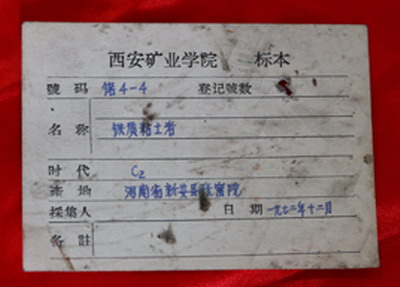 西安矿业学院 标本
號码 储4-4 登记號数
名称 铁质粘土岩
时代 C2
产地 河南省新安县
採集人 日期 一九七二年十二月
备註